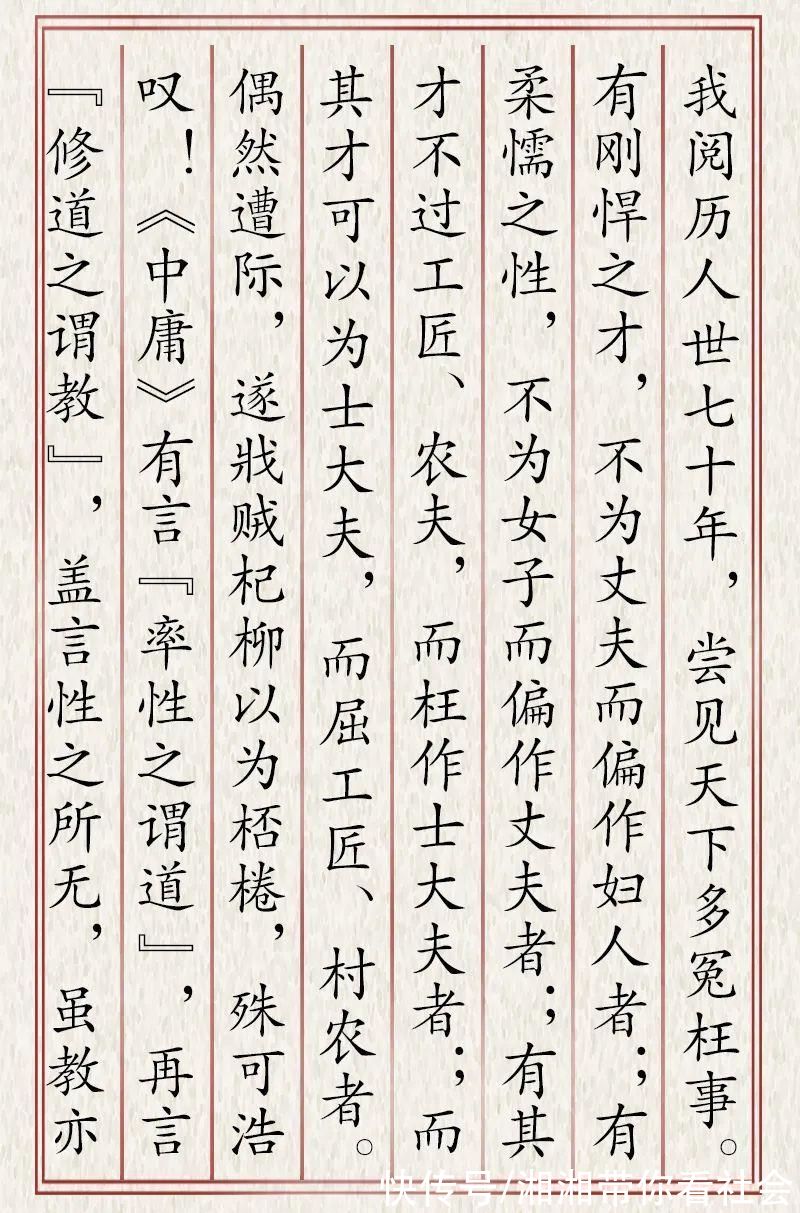 我阅历人世七十年，尝见天下多冤枉事。
有刚悍之才，不为丈夫而偏作妇人者；有
柔懦之性，不为女子而偏作丈夫者；有其
才不过工匠、农夫，而枉作士大夫者；而
其才可以为士大夫，而屈工匠、村农者。
偶然遭际，遂戕贼杞柳以为桮棬，殊可浩
叹！《中庸》有言『率性之谓道』，再言
『修道之谓教』，盖言性之所无，虽教亦
快传号/湘湘带你看社会